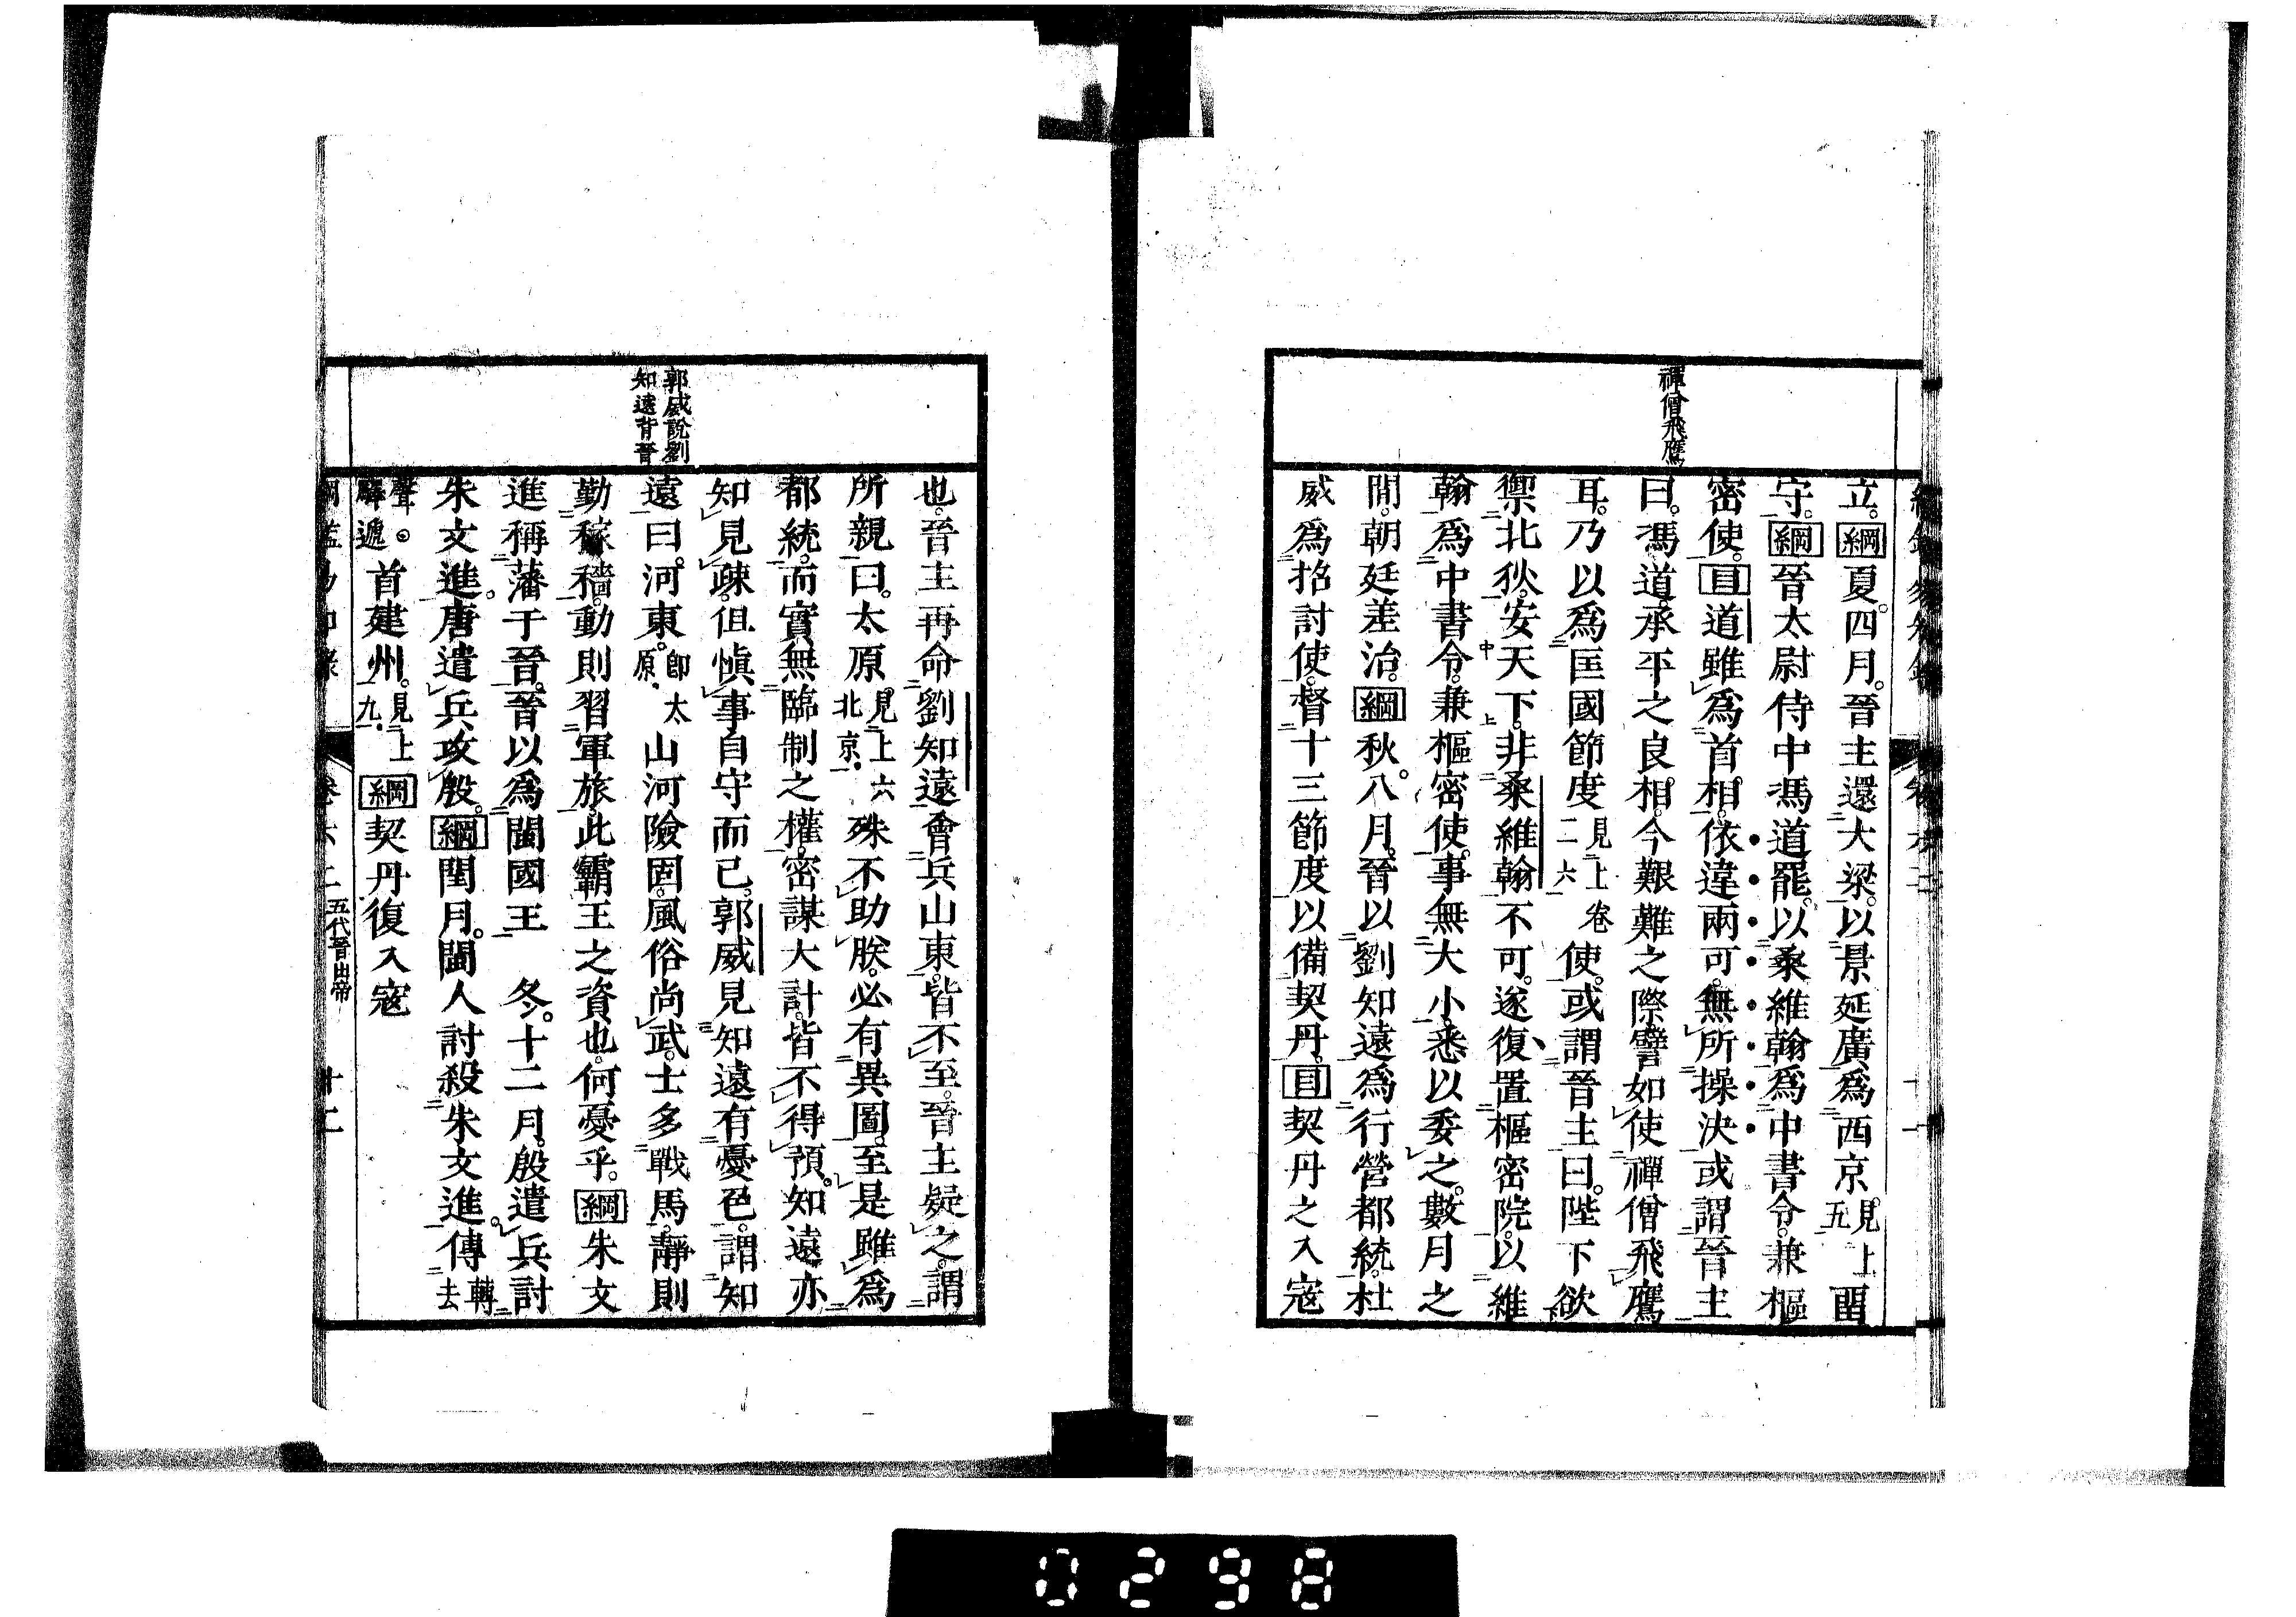 禪僧飛鷹
立。綱夏。四月。晉主還大梁。以景延廣爲西京。見上五畱
守。綱晉太尉侍中馮道罷。以桑維翰爲中書令。兼樞
密使。目道雖爲首相。依違兩可。無所操決。或謂晉主
曰。馮道。承平之良相。今艱難之際。譬如使禪僧飛鷹
耳。乃以爲匡國節度見上卷二六使。或謂晉主曰。陛下欲
禦北狄。安天下。非桑維翰不可。遂復置樞密院。以維
翰爲中書令。兼樞密使。事無大小。悉以委之。數月之
閒。朝廷差治。綱秋。八月。晉以劉知遠爲行營都統。杜
威爲招討使。督十三節度以備契丹。目契丹之入寇
郭威說劉
知遠背晉
也。晉主再命劉知遠會兵山東。皆不至。晉主疑之。謂
所親曰。太原。見上六北京殊不助朕。必有異圖。至是雖爲
都統。而實無臨制之權。密謀大計。皆不得預。知遠亦
知見疎。但愼事自守而已。郭威見知遠有憂色。謂知
遠曰。河東。卽太原山河險固。風俗尚武。士多戰馬。靜則
勤稼穡。動則習軍旅。此霸王之資也。何憂乎。綱朱文
進稱藩于晉。晉以爲閩國王　冬。十二月。殷遣兵討
朱文進。唐遣兵攻殷。綱閏月。閩人討殺朱文進。傳轉去
聲。驛遞首建州。見上九綱契丹復入寇
卷六二 五代晉出帝 十二
0298